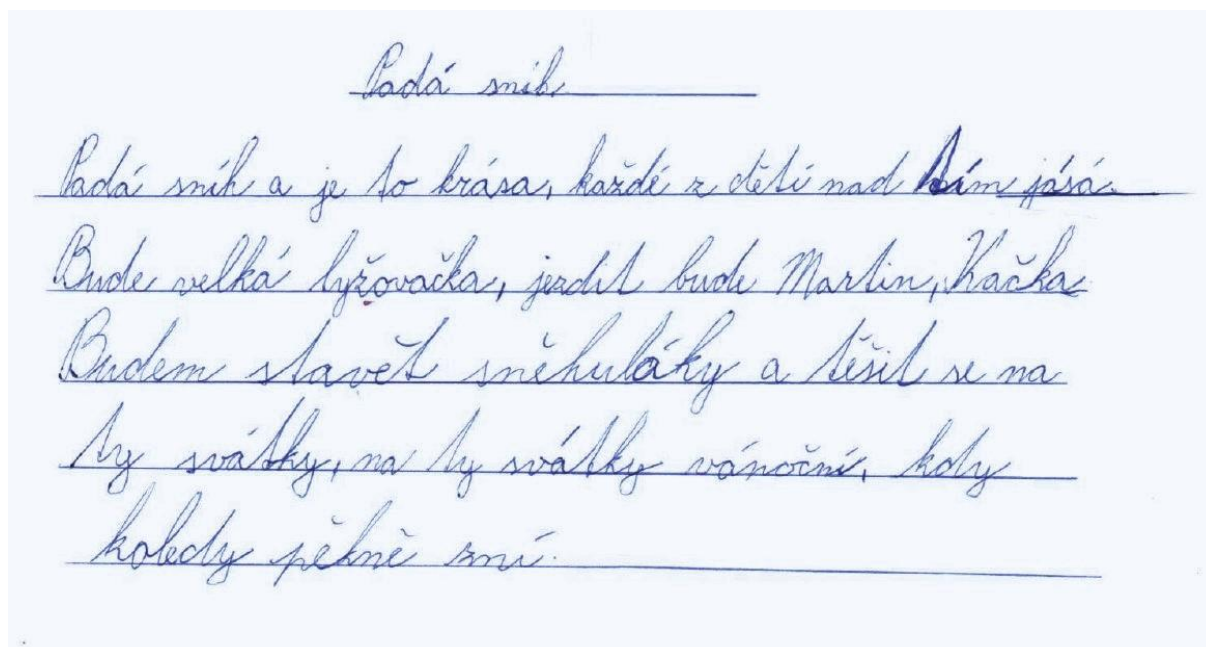 Padá sníh
Padá sníh a je to krása, každé z dětí nad tím jásá.
Bude velká lyžovačka, jezdit bude Martin, Kačka
Budem stavět sněhuláky a těšit se na
ty svátky, na ty svátky vánoční, kdy
koledy pěkně zní.